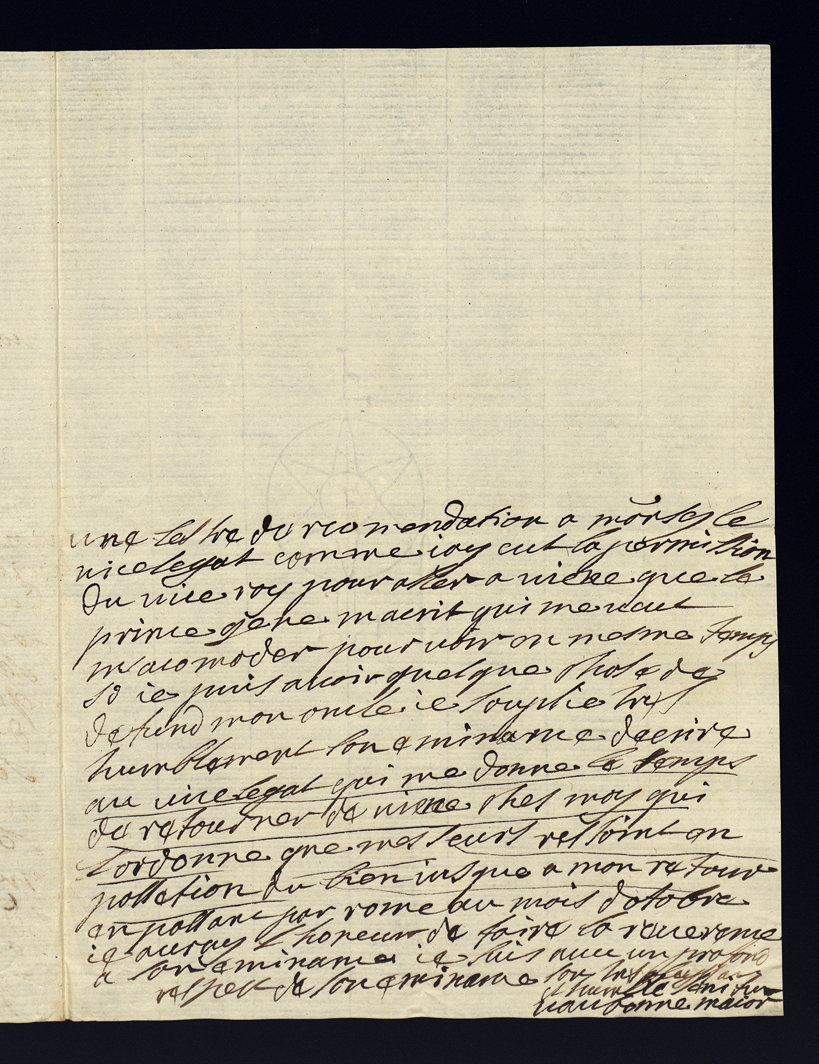 une lestre de recomendation a monsig le
vicelegat comme iay eut la permission
du vice roy pour aller a viene que le
prince gene mecrit qui me veut
macomoder pour voir en mesme temps
si ie puis avoir quelque chose de
defund mon oncle ie souplie tres
humblement son eminance decrire
au vicelegat qui me donne le temps
de retourner de viene ches moy qui
lordonne que mes seurs restoint en
possetion du bien iusque a mon retour
en passant par rome au mois dotobre
ie auray l honeur de faire la reverense
a son eminance ie suis avec un profond
respet de son eminance son tres
et hum
maior